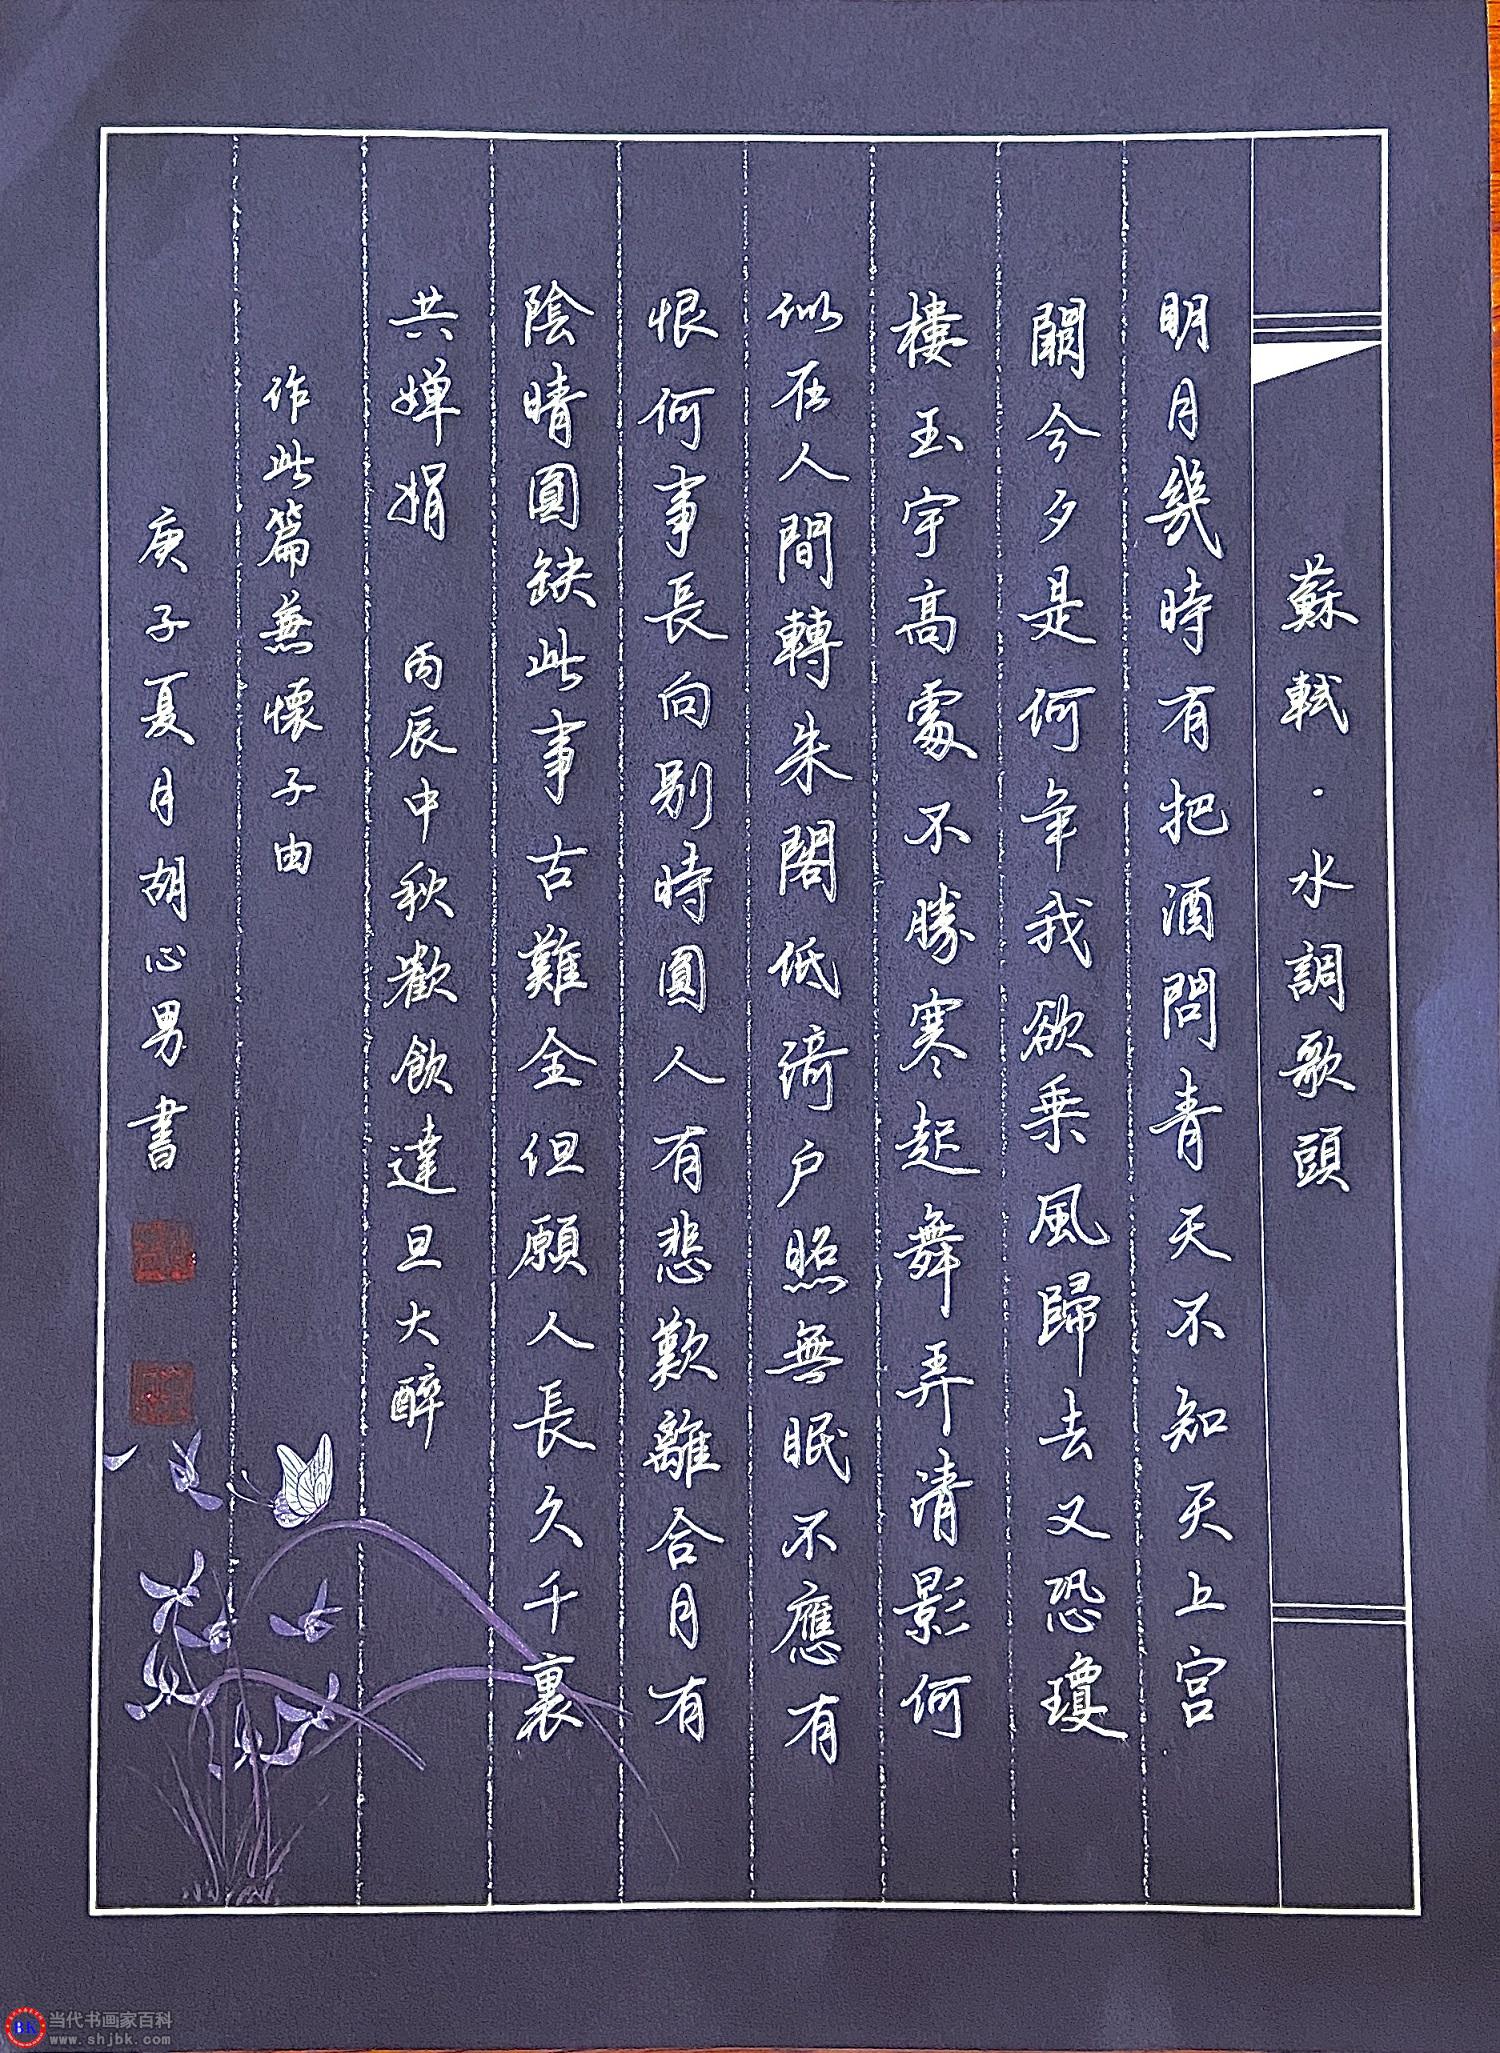 蘇軾·水調歌頭
明月幾時有把酒問青天不知天上宫
闕今夕是何年我欲乘風歸去又恐瓊
樓玉宇高處不勝寒起舞弄清影何
似在人間轉朱閣低綺户照無眠不應有
恨何事長向别時圓人有悲歎離合月有
陰晴圓缺此事古難全但願人長久千裏
共嬋娟 丙辰中秋歡飲達旦大醉
作此篇兼懷子由
庚子夏月胡心男書
BK 当代书画家百科
www.shjbk.com